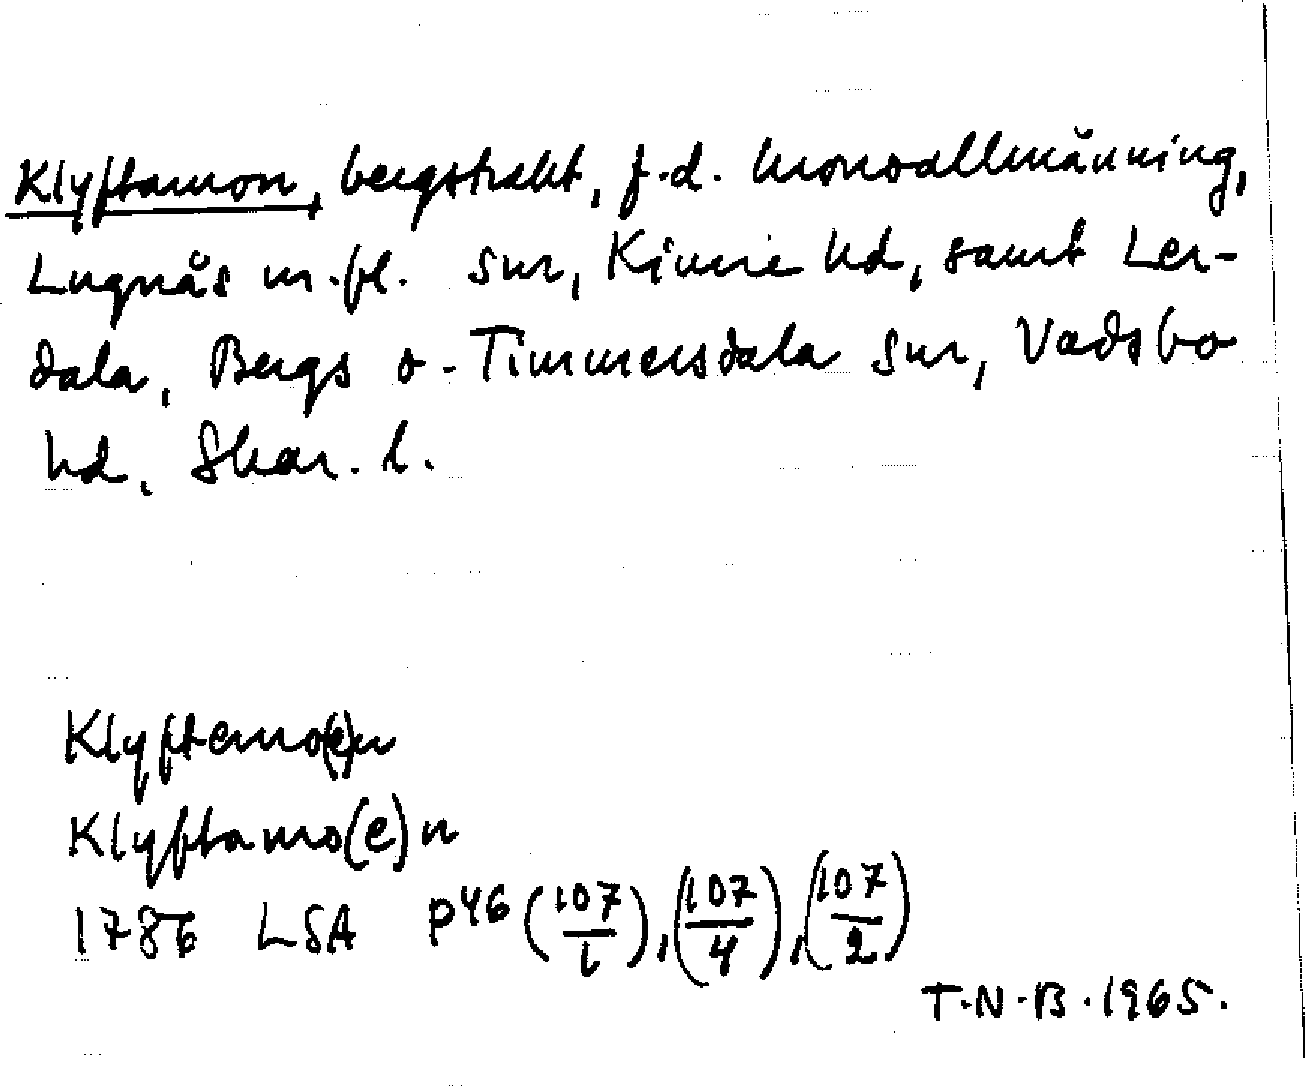 Klyftamon, bergstrakt, f.d. kronoallmänning,
Lugnås m.fl. snr, Kinne hd, samt Ler-
dala, Bergs o. Timmersdala snr, Vadsbo
hd, Skar. l.
Klyftemo(e)n
Klyftamo(e)n
1786 LSA P46 (107/1), (107/4), (107/2)
T.N.B. 1965.